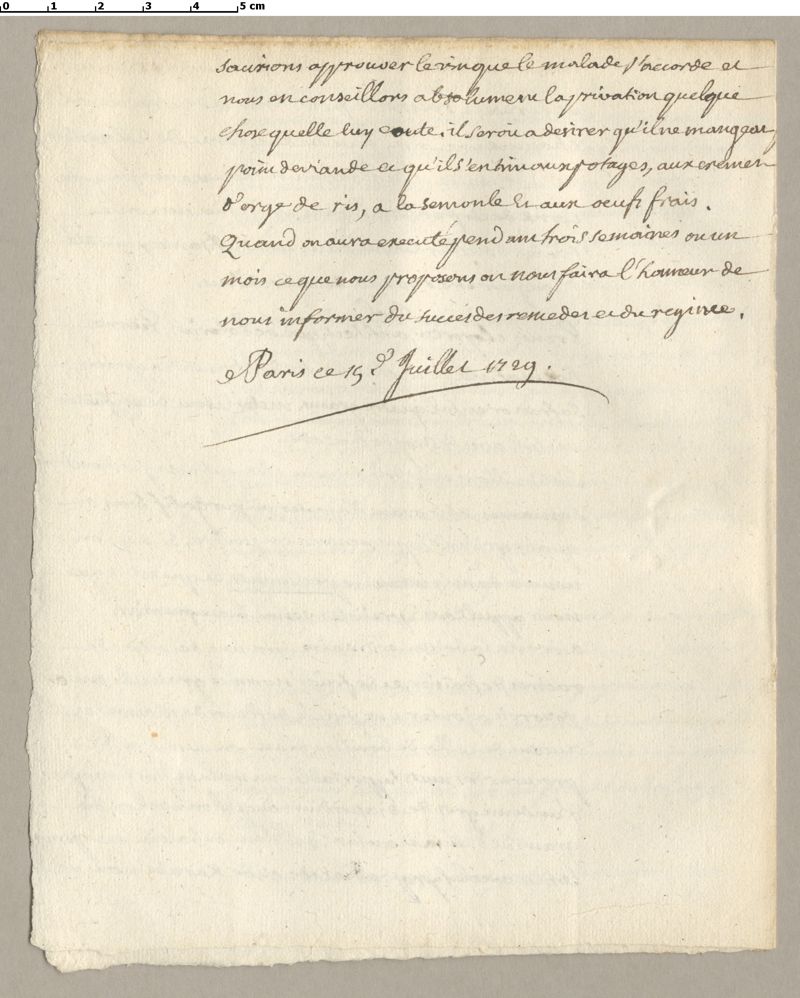 0 1 2 3 4 5 cm
sacirions approuver le vin que le malade s'accorde et
nous en conseillons absolument la privation quelque
chose quelle luy coute. il seroit a desirer qu'il ne mangeat
point de viande et qu'il s'en tint aux potages, aux cremes
d'orge de ris, a la semoule et aux oeufs frais.
Quand on aura executé pendant trois semaines ou un
mois ce que nous proposons on nous faira l'honneur de
nous informer du succés des remedes et du regime.
a Paris ce 15e Juillet 1729.